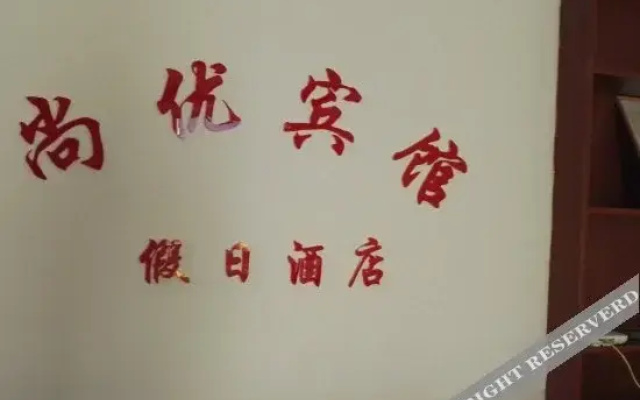 尚优宾馆
假日酒店
RIGHT RESERVERD